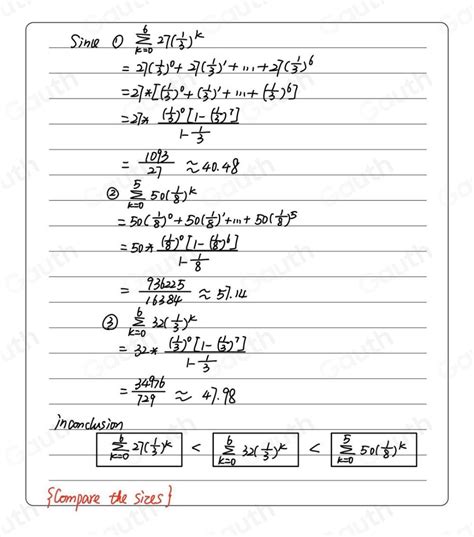 Since ① ∑_{k=0}^{6} 27(1/3)^k
= 27(1/3)^0 + 27(1/3)^1 + ... + 27(1/3)^6
= 27*[(1/3)^0 + (1/3)^1 + ... + (1/3)^6]
= 27* (1/3)^0[1-(1/3)^7] / 1-1/3
= 1093/27 ≈ 40.48
② ∑_{k=0}^{5} 50(1/8)^k
= 50(1/8)^0 + 50(1/8)^1 + ... + 50(1/8)^5
= 50* (1/8)^0[1-(1/8)^6] / 1-1/8
= 936225/16384 ≈ 57.14
③ ∑_{k=0}^{6} 32(1/3)^k
= 32* (1/3)^0[1-(1/3)^7] / 1-1/3
= 34976/729 ≈ 47.98
in conclusion
∑_{k=0}^{6} 27(1/3)^k < ∑_{k=0}^{6} 32(1/3)^k < ∑_{k=0}^{5} 50(1/8)^k
{Compare the sizes}
Gauth